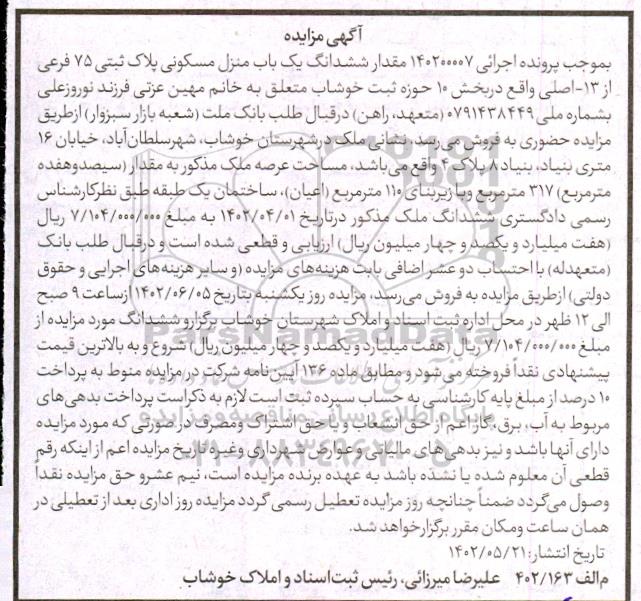 آگهی مزایده
بموجب پرونده اجرائی ۱۴۰۲۰۰۰۰۷ مقدار ششدانگ یک باب منزل مسکونی پلاک ثبتی ۷۵ فرعی
از ۱۳-اصلی واقع دربخش ۱۰ حوزه ثبت خوشاب متعلق به خانم مهین عزتی فرزند نوروزعلی
بشماره ملی ۰۷۹۱۴۳۸۴۴۹ (متعهد، راهن) درقبال طلب بانک ملت (شعبه بازار سبزوار) ازطریق
مزایده حضوری به فروش می‌رسد، نشانی ملک درشهرستان خوشاب، شهرسلطان‌آباد، خیابان ۱۶
متری بنیاد، بنیاد ۸، پلاک ۴ واقع می‌باشد، مساحت عرصه ملک مذکور به مقدار (سیصدوهفده
مترمربع) ۳۱۷ مترمربع وبا زیربنای ۱۱۰ مترمربع (اعیان)، ساختمان یک طبقه طبق نظرکارشناس
رسمی دادگستری ششدانگ ملک مذکور درتاریخ ۱۴۰۲/۰۴/۰۱ به مبلغ ۷/۱۰۴/۰۰۰/۰۰۰ ریال
(هفت میلیارد و یکصد و چهار میلیون ریال) ارزیابی و قطعی شده است و درقبال طلب بانک
(متعهدله) با احتساب دو عشر اضافی بابت هزینه‌های مزایده (و سایر هزینه‌های اجرایی و حقوق
دولتی) ازطریق مزایده به فروش می‌رسد، مزایده روز یکشنبه بتاریخ ۱۴۰۲/۰۶/۰۵ ازساعت ۹ صبح
الی ۱۲ ظهر در محل اداره ثبت اسناد و املاک شهرستان خوشاب برگزارو ششدانگ مورد مزایده از
مبلغ ۷/۱۰۴/۰۰۰/۰۰۰ ریال (هفت میلیارد و یکصد و چهار میلیون ریال) شروع و به بالاترین قیمت
پیشنهادی نقداً فروخته می شود و مطابق ماده ۱۳۶ آیین نامه شرکت در مزایده منوط به پرداخت
۱۰ درصد از مبلغ پایه کارشناسی به حساب سپرده ثبت است لازم به ذکراست پرداخت بدهی‌های
مربوط به آب، برق، گاز اعم از حق انشعاب و یا حق اشتراک ومصرف در صورتی که مورد مزایده
دارای آنها باشد و نیز بدهی های مالیاتی و عوارض شهرداری وغیره تاریخ مزایده اعم از اینکه رقم
قطعی آن معلوم شده یا نشده باشد به عهده برنده مزایده است، نیم عشرو حق مزایده نقداً
وصول می‌گردد ضمناً چنانچه روز مزایده تعطیل رسمی گردد مزایده روز اداری بعد از تعطیلی در
همان ساعت ومکان مقرر برگزارخواهد شد.
تاریخ انتشار: ۱۴۰۲/۰۵/۲۱
م الف ۴۰۲/۱۶۳ علیرضا میرزائی، رئیس ثبت اسناد و املاک خوشاب